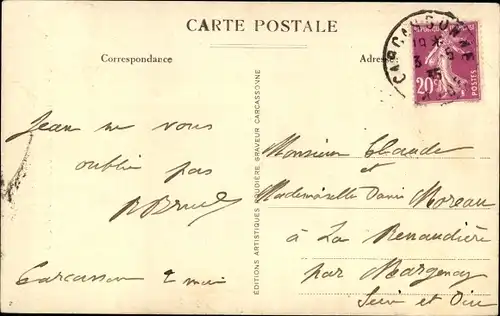 CARTE POSTALE
Correspondance
Adresse
CARCASSONNE
3 - 5
35
20c
POSTES
Jean ne vous
oublie pas
Carcassonne 2 mai
EDITIONS ARTISTIQUES ROUDIÈRE, GRAVEUR CARCASSONNE
Monsieur Claude
et
Mademoiselle Moreau
à La Renaudière
par Margency
Seine et Oise